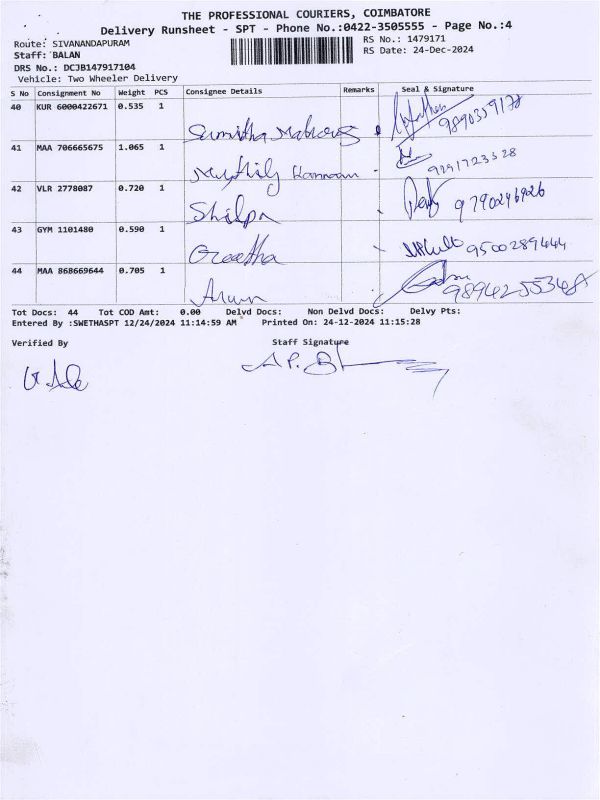 THE PROFESSIONAL COURIERS, COIMBATORE
Delivery Runsheet - SPT - Phone No.:0422-3505555 - Page No.:4
Route: SIVANANDAPURAM RS No.: 1479171
Staff: BALAN RS Date: 24-Dec-2024
DRS No.: DCJB147917104
Vehicle: Two Wheeler Delivery
S No Consignment No Weight PCS Consignee Details Remarks Seal & Signature
40 KUR 6000422671 0.535 1
Sumitha
41 MAA 706665675 1.065 1
Kannan
42 VLR 2778087 0.720 1 9790246926
Shilpa
43 GYM 1101480 0.590 1 9500289444
Geetha
44 MAA 868669644 0.705 1
Arun
Tot Docs: 44 Tot COD Amt: 0.00 Delvd Docs: Non Delvd Docs: Delvy Pts:
Entered By :SWETHASPT 12/24/2024 11:14:59 AM Printed On: 24-12-2024 11:15:28
Verified By Staff Signature